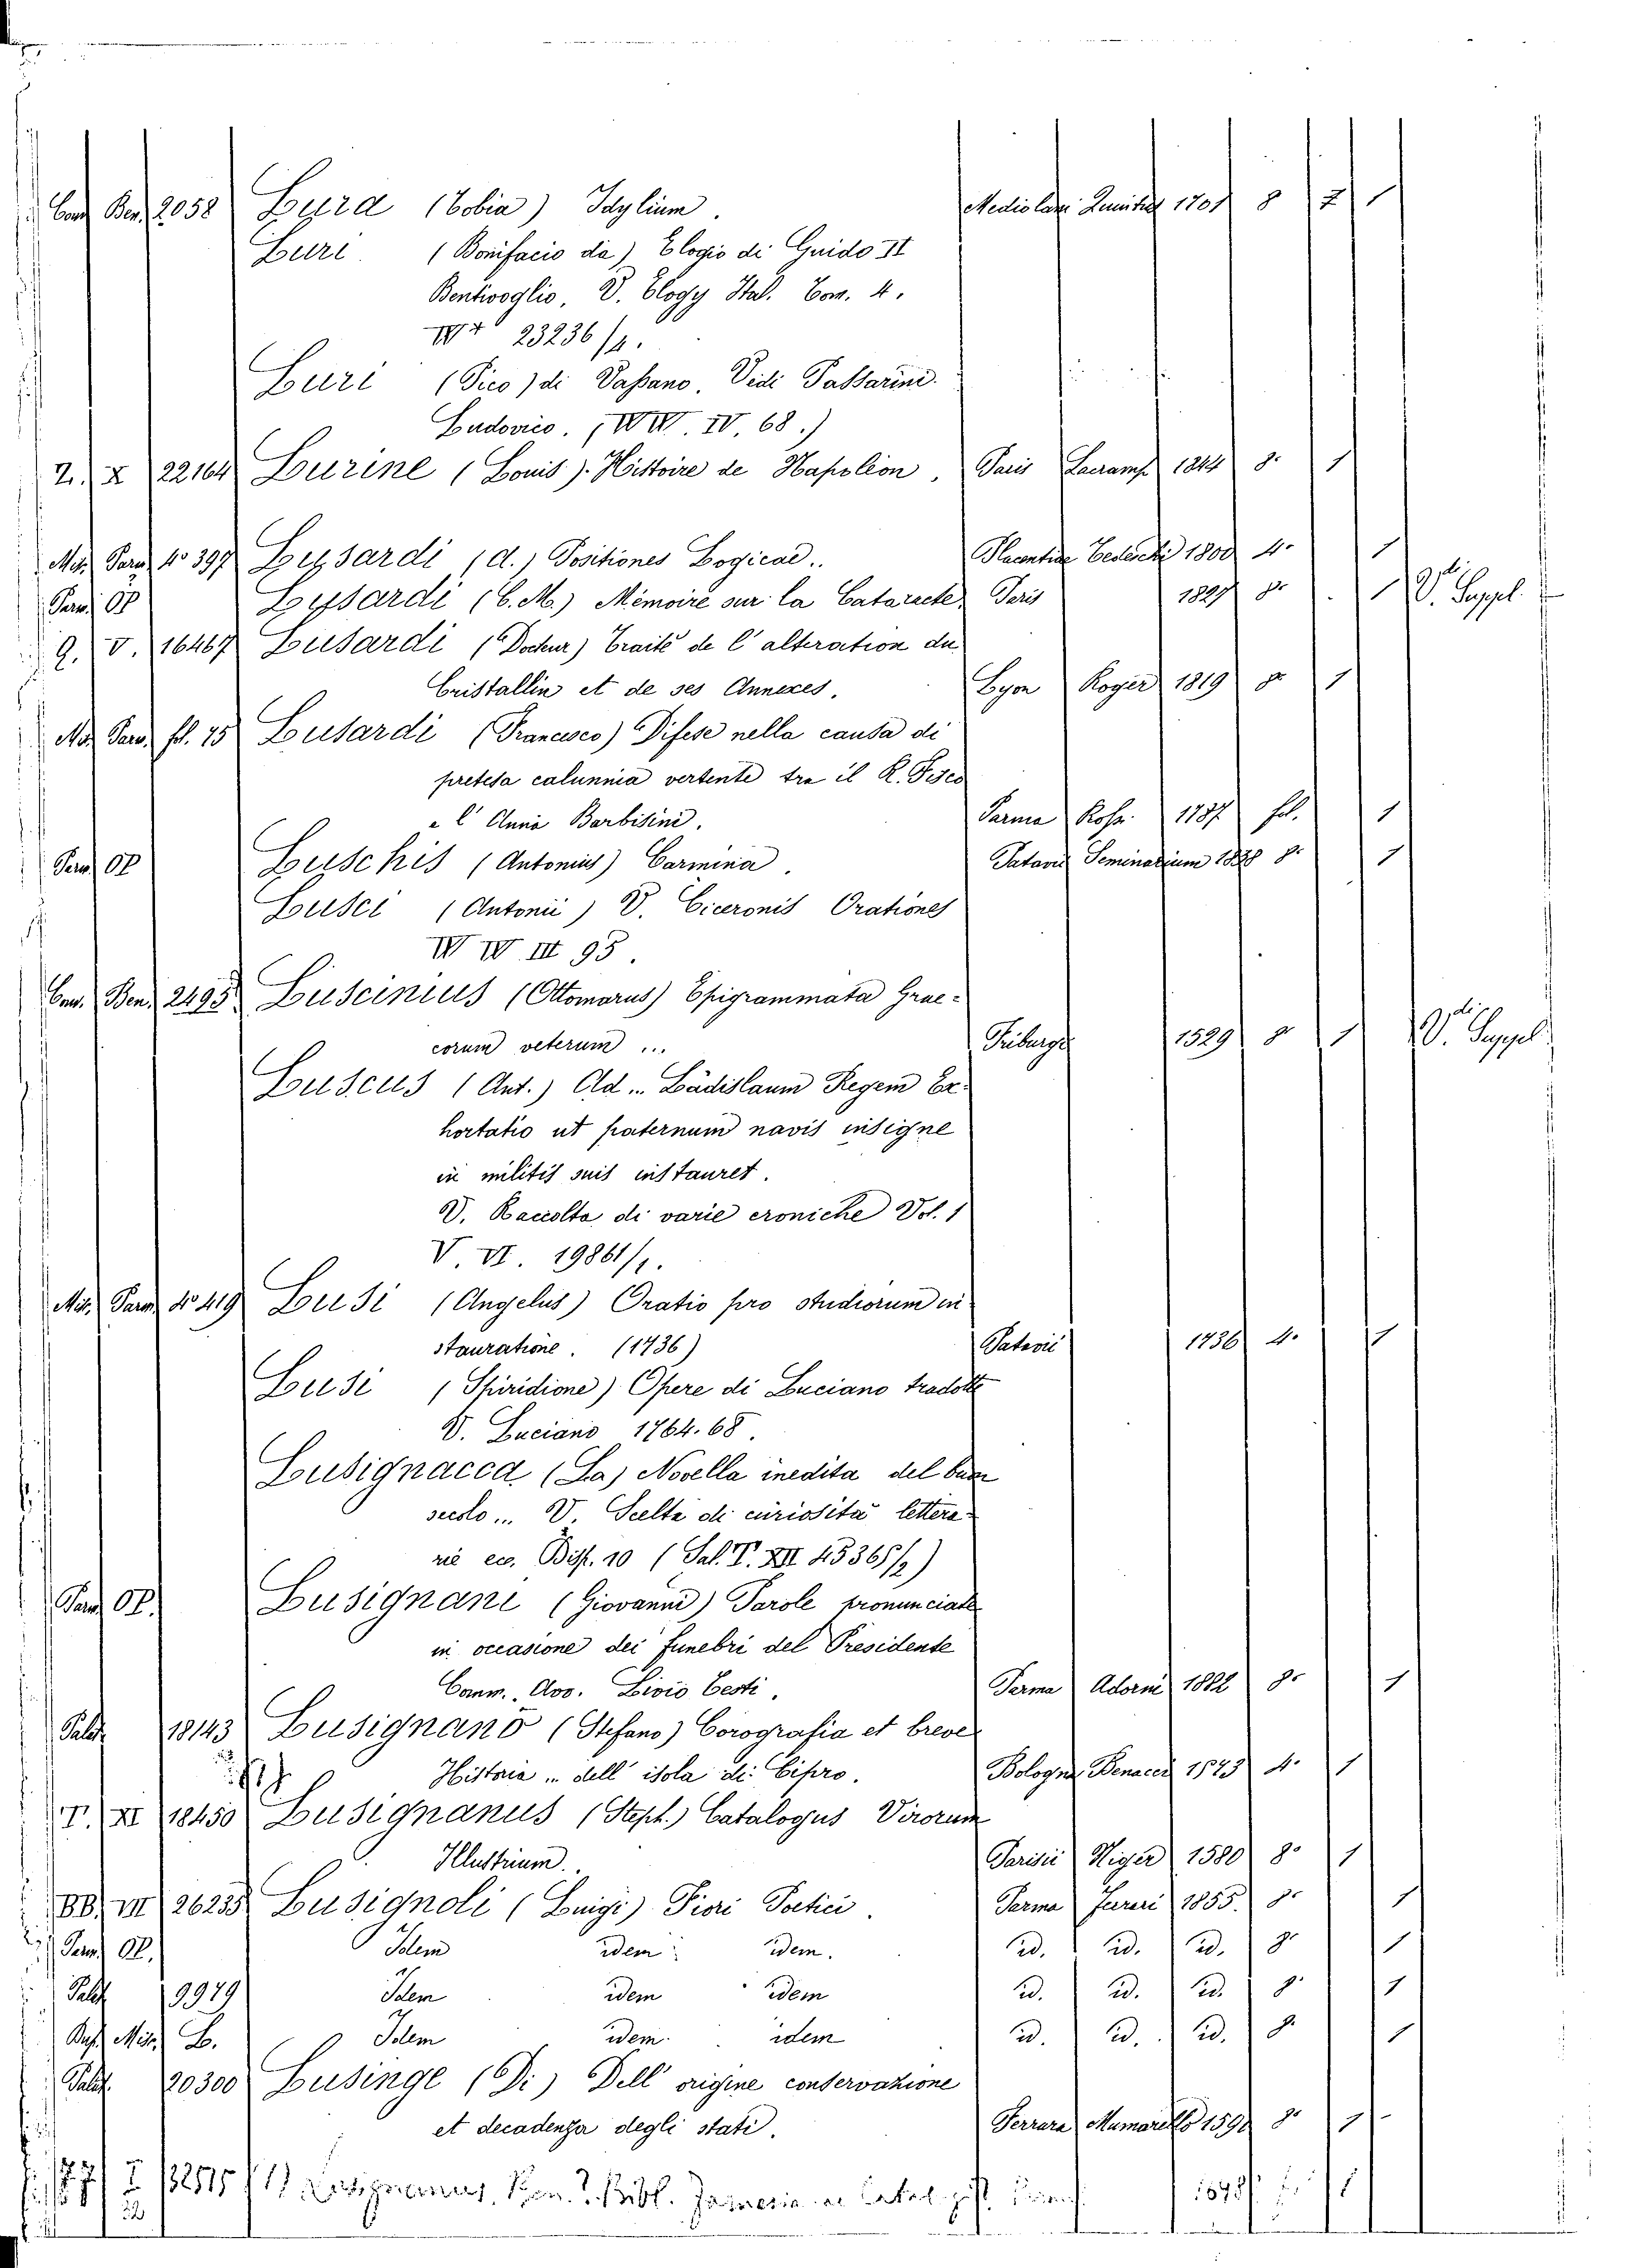 Ben. 2058 Lura (Tobia) Idylium. Mediolani 1701 8 1
Luri (Bonifacio da) Elogio di Guido II
Bentivoglio, V. Elogy Ital. Tom. 4.
23236/4.
Luri (Pico) di Vassano. Vidi Passarini
Ludovico. (WW. IV. 68.)
Z. X 22164 Lurine (Louis). Histoire de Napoléon, Paris Lacramp. 1844 8° 1
Mis. Parm. 4° 397 Lusardi (A.) Positiones Logicae.. Placentiae Tedeschi 1800 4° 1
Parm. OP Lusardi (C. M.) Mémoire sur la Cataracte, Paris 1827 8° 1 V. Suppl.
Q. V. 16467 Lusardi (Docteur) Traité de l'alteration du
Cristallin et de ses Annexes. Lyon Roger 1819 8° 1
Mis. Parm. fol. 15 Lusardi (Francesco) Difese nella causa di
pretesa calunnia vertente tra il R. Fisco
e l' Anna Barbisini. Parma 1787 fol. 1
Parm. OP Luschis (Antonius) Carmina. Patavii Seminarium 8° 1
Lusci (Antonii) V. Ciceronis Orationes
W W III 95.
Ben. 2495 Luscinius (Ottomarus) Epigrammata Grae-
corum veterum ... Friburgi 1529 8° 1 V. Suppl
Luscus (Ant.) Ad... Ladislaum Regem Ex-
hortatio ut paternum navis insigne
in militis suis instauret.
V. Raccolta di varie croniche Vol. 1
V. VI. 19861/1.
Mis. Parm. 4° 419 Lusi (Angelus) Oratio pro studiorum in-
stauratione. (1736) Patavii 1736 4° 1
Lusi (Spiridione) Opere di Luciano tradotte
V. Luciano 1764.68.
Lusignacca (La) Novella inedita del buon
secolo... V. Scelta di curiosità lettera-
rie ec. Disp. 10 (Sal. T. XII 45365/2)
Parm. OP. Lusignani (Giovanni) Parole pronunciate
in occasione dei funebri del Presidente
Comm. Avv. Livio Cesti. Parma Adorni 1882 8° 1
Palat. 18143 Lusignano (Stefano) Corografia et breve
Historia .. dell' isola di Cipro. Bologna Benacci 1573 4° 1
T. XI 18450 Lusignanus (Steph.) Catalogus Virorum
Illustrium. Parisii Niger 1580 8° 1
BB. VII 26235 Lusignoli (Luigi) Fiori Poetici. Parma Ferrari 1855. 8° 1
Parm. OP. Idem idem idem. id. id. id. 8° 1
Palat. 9979 Idem idem idem id. id. id. 8° 1
Mis. B. Idem idem idem id. id. id. 8° 1
Palat. 20300 Lusinge (Di) Dell' origine conservazione
et decadenza degli stati. Ferrara Mamarello 1590 8° 1